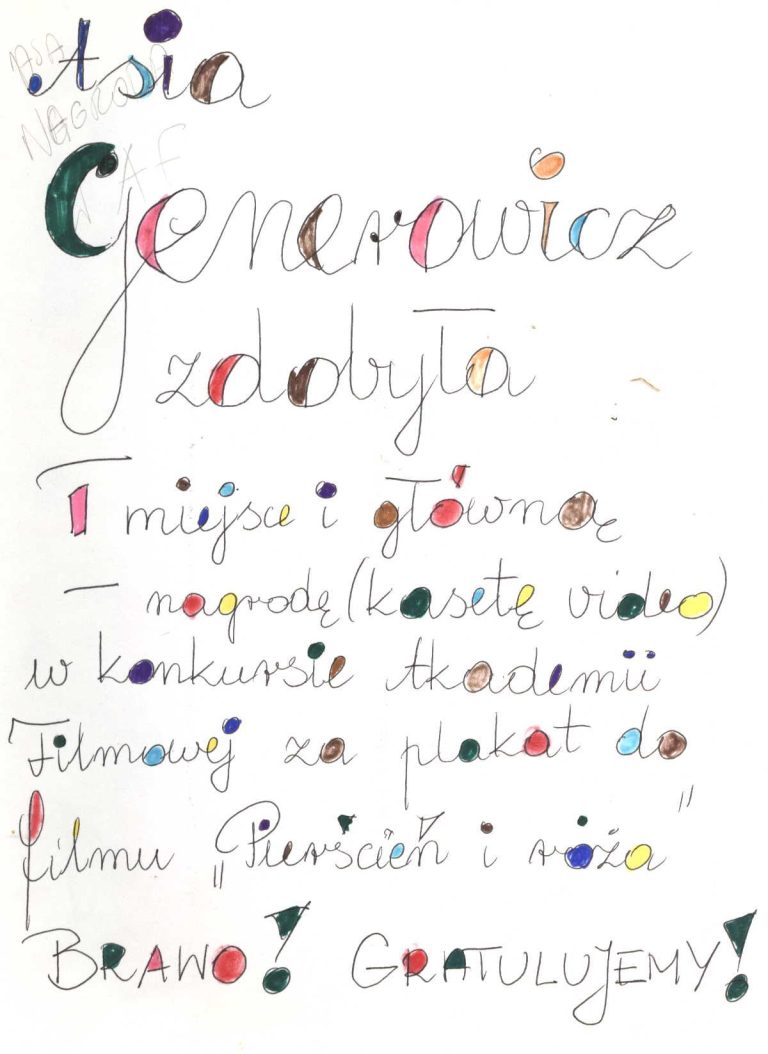 Asia
ASIA
NAGRODA
AF
Generowicz
zdobyła
I miejsce i główną
nagrodę (kasetę video)
w konkursie Akademii
Filmowej za plakat do
filmu „Pierścień i róża”
BRAWO! GRATULUJEMY!